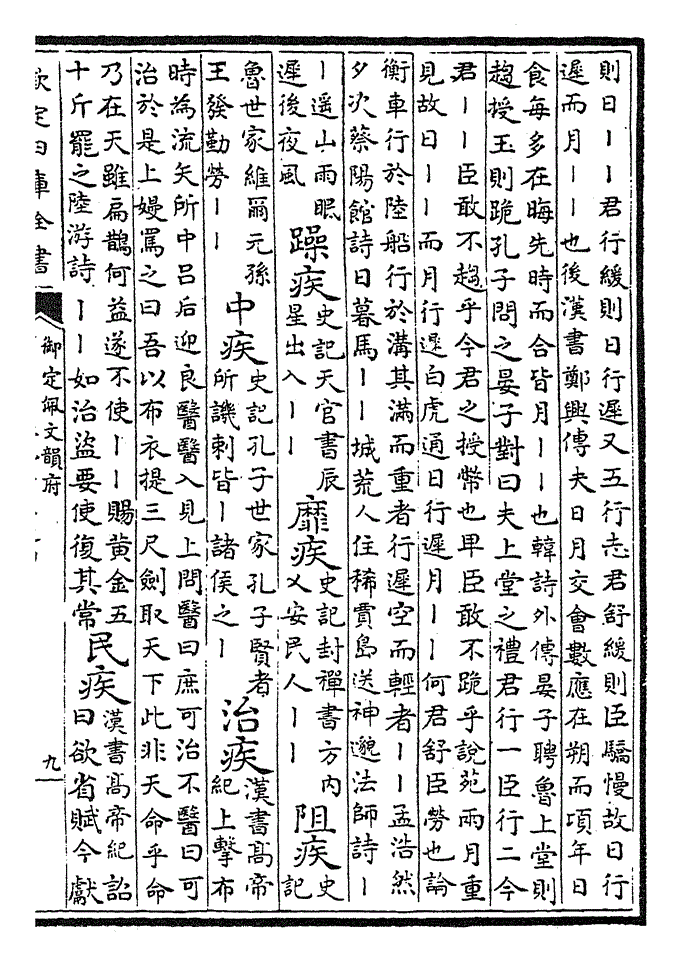 則日丨丨君行緩則日行遲又五行志君舒緩則臣驕慢故日行
遲而月丨丨也後漢書鄭興傳夫日月交會數應在朔而頃年日
食每多在晦先時而合皆月丨丨也韓詩外傳晏子聘魯上堂則
趨授玉則跪孔子問之晏子對曰夫上堂之禮君行一臣行二今
君丨丨臣敢不趨乎今君之授幣也卑臣敢不跪乎說苑雨月重
見故日丨丨而月行遲白虎通日行遲月丨丨何君舒臣勞也論
衡車行於陸船行於溝其滿而重者行遲空而輕者丨丨孟浩然
夕次蔡陽館詩日暮馬丨丨城荒人住稀賈島送神邈法師詩丨
丨遥山雨眠
遲後夜風
躁疾
史記天官書辰
星出入丨丨
靡疾
史記封禪書方内
乂安民人丨丨
阻疾
史
記
魯世家維爾元孫
王發勤勞丨丨
中疾
史記孔子世家孔子賢者
所譏刺皆丨諸侯之丨
治疾
漢書髙帝
紀上擊布
時為流矢所中吕后迎良醫醫入見上問醫曰庶可治不醫曰可
治於是上嫚罵之曰吾以布衣提三尺劍取天下此非天命乎命
乃在天雖扁鵲何益遂不使丨丨賜黄金五
十斤罷之陸游詩丨丨如治盜要使復其常
民疾
漢書髙帝紀詔
曰欲省賦今獻
欽定四庫全書
御定佩文韻府
九